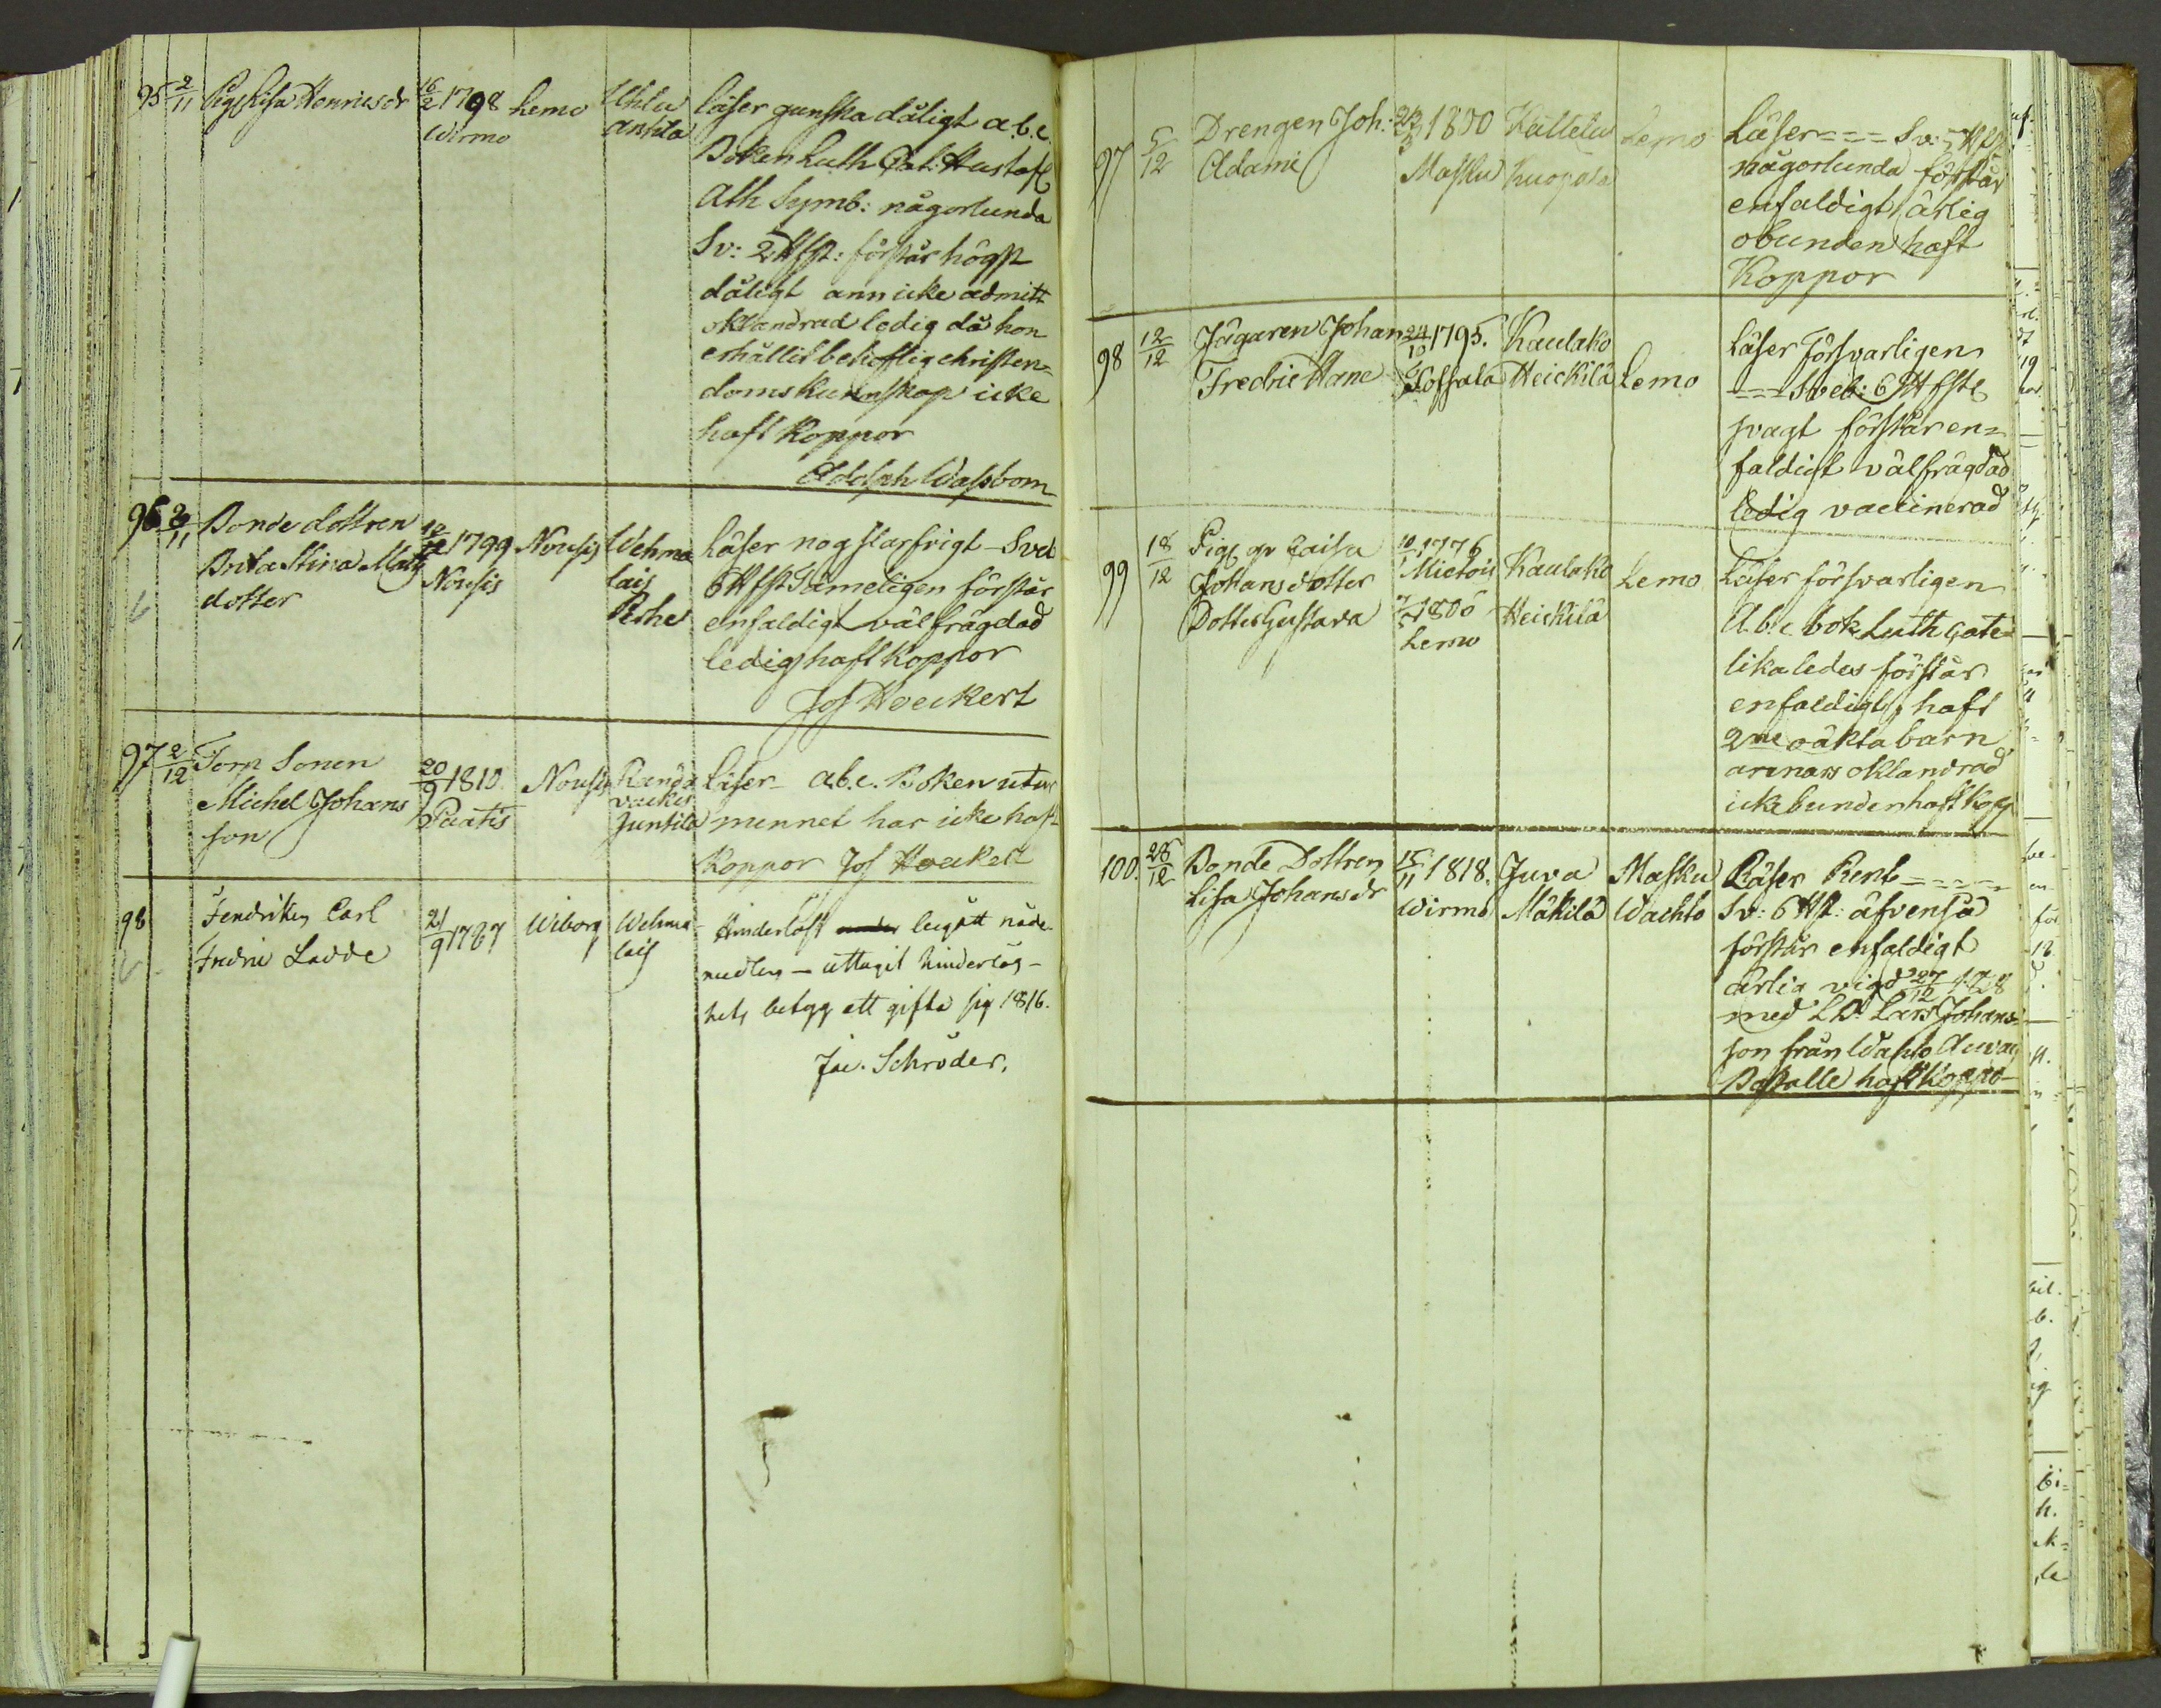 95 2/11 Pig Lisa Henricsdr 16/2 1798 Lemo
Wirmo
läser ganska dåligt a.b.c.
Boken Luth Cat: Hustafl
Ath Symb: någorlunda
Sv: 2 Hfst: förstår högst
dåligt ann icke admitt
oklandrad ledig då hon
erhållit behöflig christen=
doms kunskap icke
haft Koppor
Adolph Wassbom
96 2/11 Bonde dottren
Brita Stina Mats
dotter
1799 Nousis
Nousis
Wehma
lais
Pirhe
Läser nog slarfvigt - Sved
6 Hfst Tämeligen förstår
enfaldigt välfrägdad
ledig haft Koppor
Jos Hoeckert
97 2/12 Torp Sonen
Michel Johans
son
20/9 1810 Nousis
Paatis
Randa
vackis
Juntila
läser a.b.c. Boken utur
minnet har icke haft
Koppor Jos Hoeckert
98 Fendriken Carl
Fredric Ladde
21/9 1787 Wiborg
Wehma
lais
Hinderlöst begått nåde
medlen - uttagit hinderlös-
hets betyg att gifta sig 1816.
Jac. Schröder.
97 5/12 Drengen Joh:
Adami
1800 Kättelä Lemo
Masku Kuopala
Läser === Sv: 5 Hfst
någorlunda förstår
enfaldigt, ärlig
obunden haft
Koppor
98 12/12 Jägaren Johan
Fredric Hane
24/10 1795. Kaulako
Heickilä Lemo
Läser försvarligen
=== Sveb: 6 Hfste
svagt förstår en=
faldigt välfrägdad
ledig vaccinerad
99 18/12 Pig Caisa
Johansdotter
Dotter Gustava
10/1 1776
Mietois Kaulako Lemo
1806 Heickilä
Lemo
Läser försvarligen
A.b.c. bok Luth Cate=
lika ledes förstår
enfaldigt, haft
2ne oäkta barn
annars oklandrad
icke bunden haft Kopp
100. 28/12 Bonde Dottren
Lisa Johansdr
15/11 1818. Juva Masku
Wirmo Mäkilä Wachto
Läser Rent ====
Sv: 6 Hfst: äfvenså
förstår enfaldigt
ärlig vigd 27/12
med LD: Lars Johans=
son från Wahto
Boställe haft Koppo-